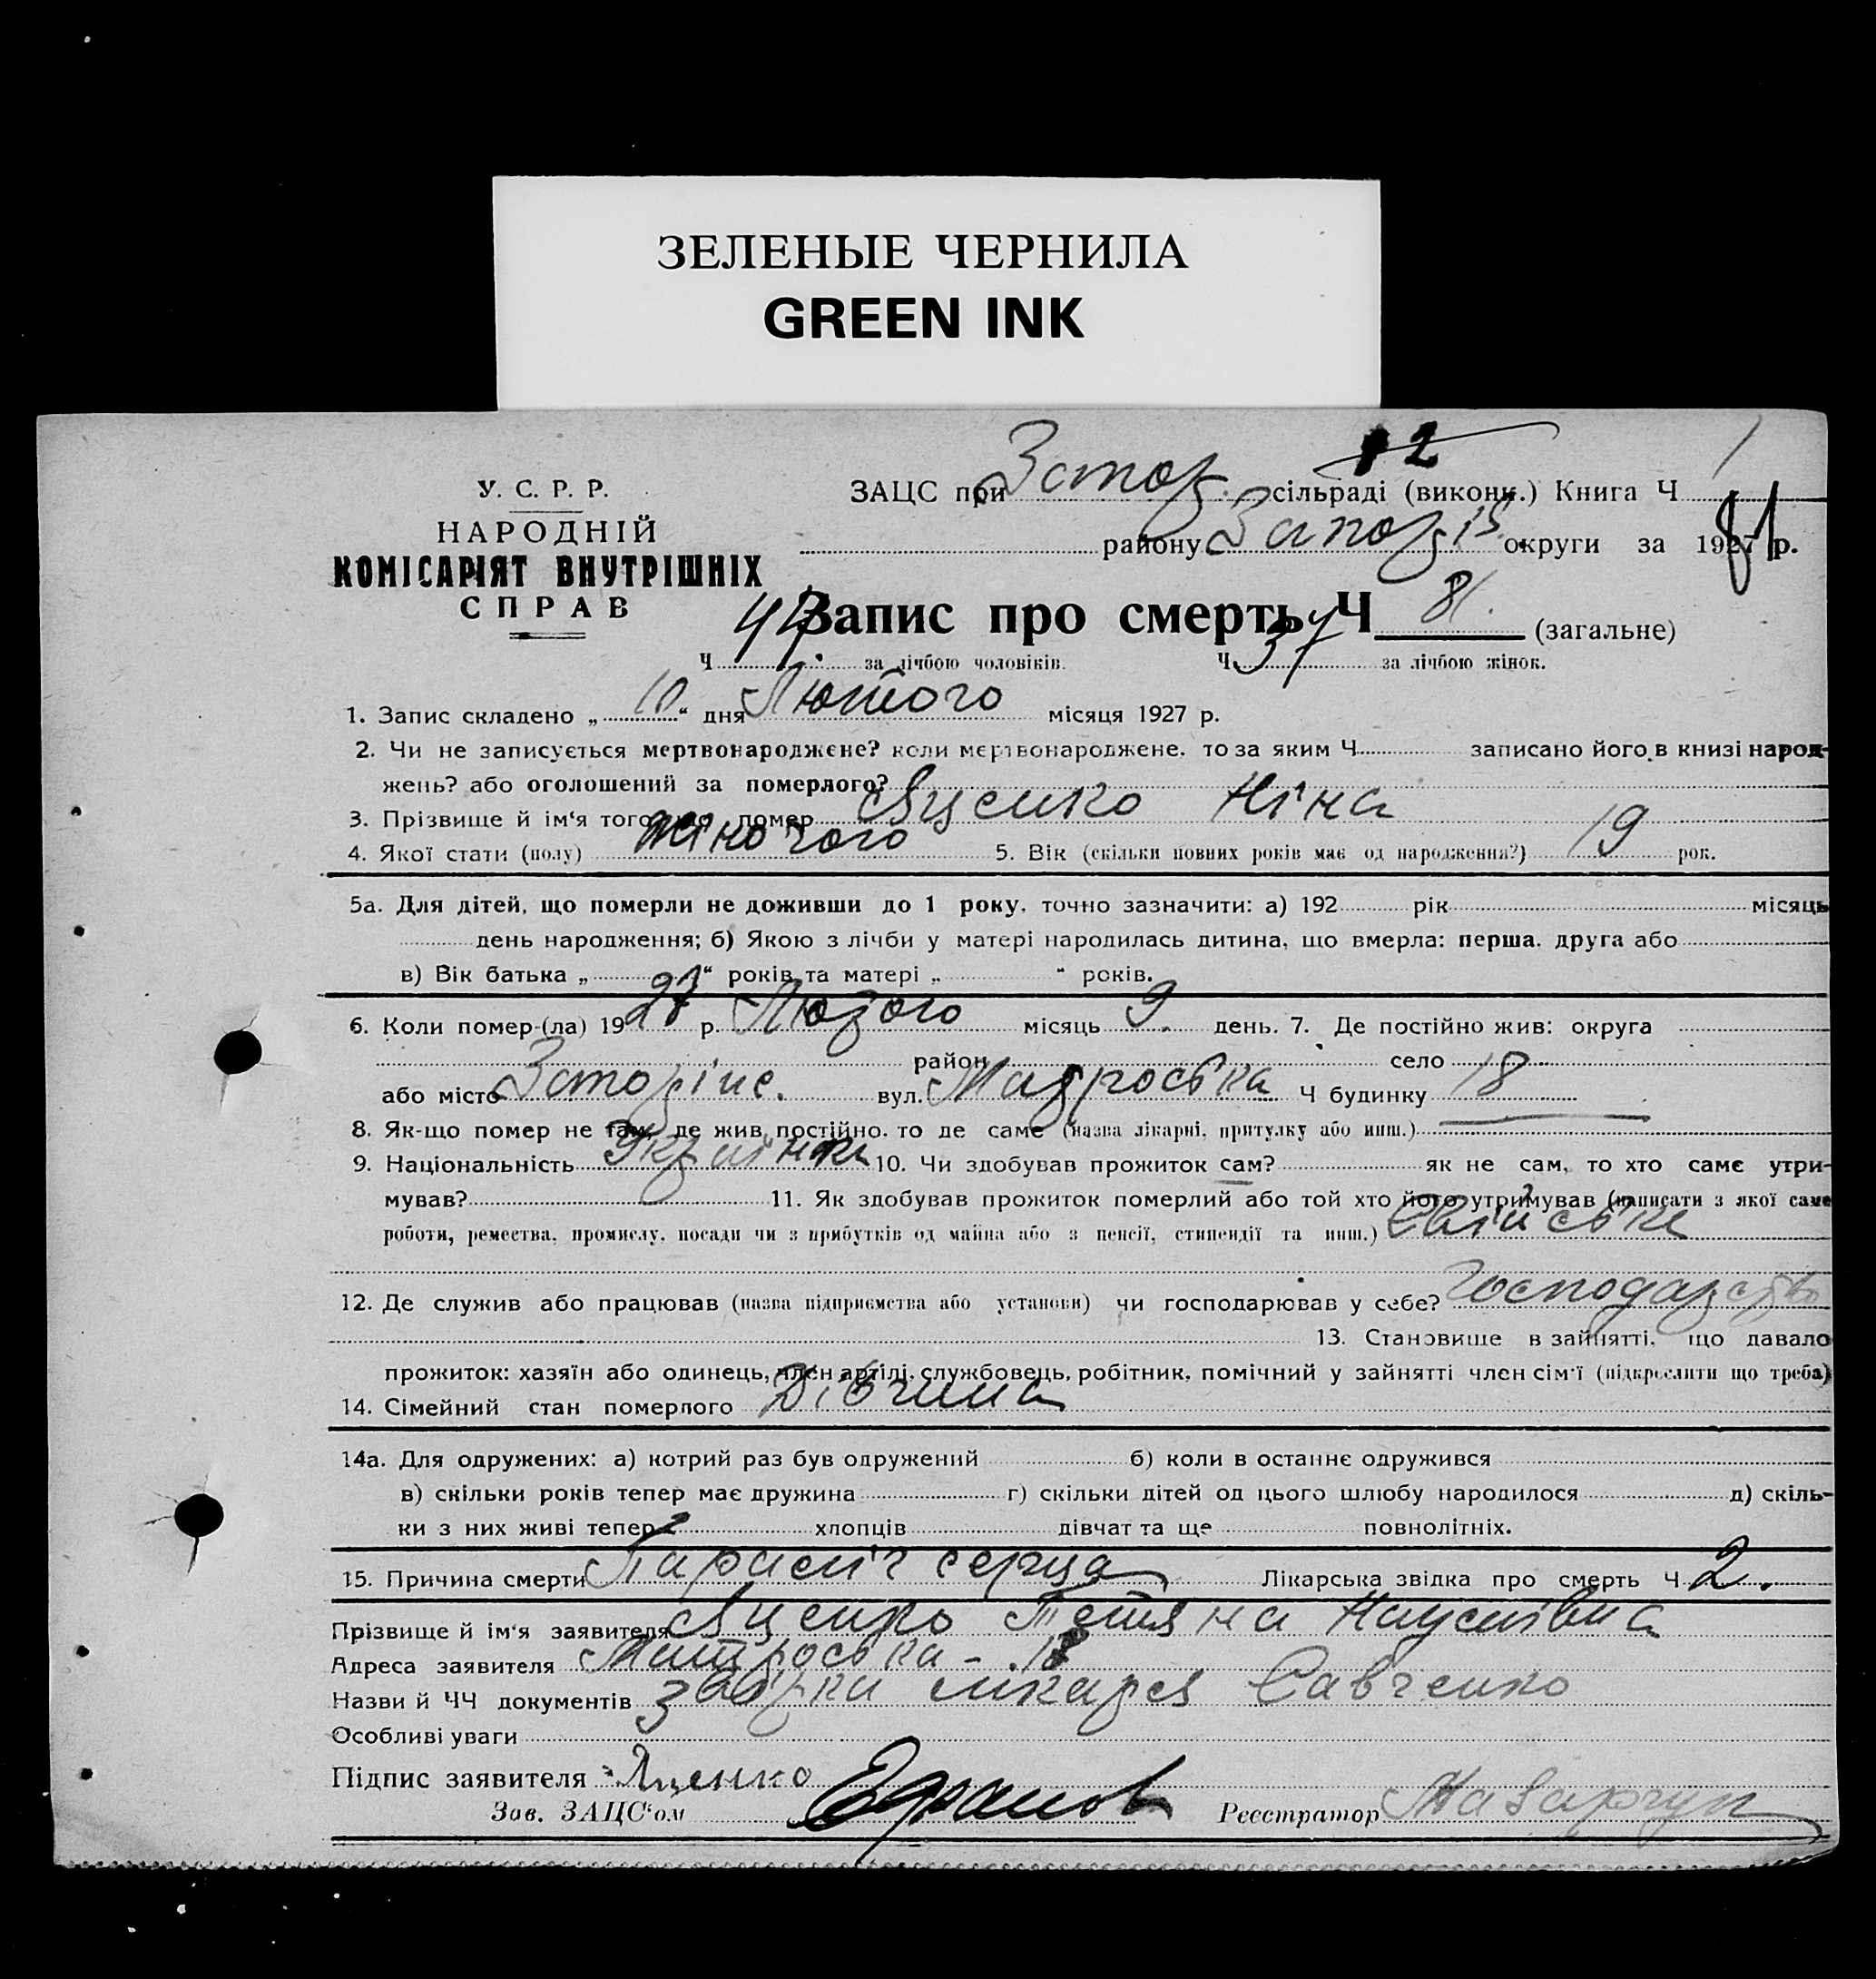 ЗЕЛЕНЫЕ ЧЕРНИЛА
GREEN INK
12
У. С. Р. Р.
НАРОДНІЙ
КОМІСАРІЯТ ВНУТРІШНІХ
СПРАВ
ЗАЦС при сільраді (виконк.) Книга Ч 1
району Запоріз. округи за 1927 р.
Запис про смерть Ч 81. (загальне)
Ч 44. за лічбою чоловіків. Ч 37 за лічбою жінок.
1. Запис складено „ 10 “ дня Лютого місяця 1927 р.
2. Чи не записується мертвонароджене? коли мертвонароджене, то за яким Ч записано його в книзі народ-
жень? або оголошений за померлого?
3. Прізвище й ім‘я того, що помер Яценко Ніна
4. Якої стати (полу) жіночого 5. Вік (скільки повних років має од народження?) 19 рок.
5а. Для дітей, що померли не доживши до 1 року, точно зазначити: а) 192 рік місяць
день народження; б) Якою з лічби у матері народилась дитина, що вмерла: перша, друга або
в) Вік батька „ “ років та матері „ “ років.
6. Коли помер-(ла) 1927 р. Лютого місяць 9 день. 7. Де постійно жив: округа
район село
або місто вул. Матроська Ч будинку 18
8. Як-що помер не там, де жив постійно, то де саме (назва лікарні, притулку або инш.)
9. Національність Українка 10. Чи здобував прожиток сам? як не сам, то хто саме утри-
мував? 11. Як здобував прожиток померлий або той хто його утримував (написати з якої саме
роботи, ремества, промислу, посади чи з прибутків од майна або з пенсії, стипендії та инш.)
12. Де служив або працював (назва підприємства або установи) чи господарював у себе? Господарство
13. Становище в зайнятті, що давало
прожиток: хазяїн або одинець, член артілі, службовець, робітник, помічний у зайнятті член сім‘ї (підкреслити що треба)
14. Сімейний стан померлого Дівчина
14а. Для одружених: а) котрий раз був одружений б) коли в останнє одружився
в) скільки років тепер має дружина г) скільки дітей од цього шлюбу народилося д) скіль-
ки з них живі тепер хлопців дівчат та ще повнолітніх.
15. Причина смерти Параліч серця Лікарська звідка про смерть Ч 2.
Прізвище й ім‘я заявителя Яценко Тетяна Наумівна
Адреса заявителя Матроська - 18
Назви й ЧЧ документів лікаря Савченко
Особливі уваги
Підпис заявителя Яценко
Зав. ЗАЦС‘ом Реєстратор